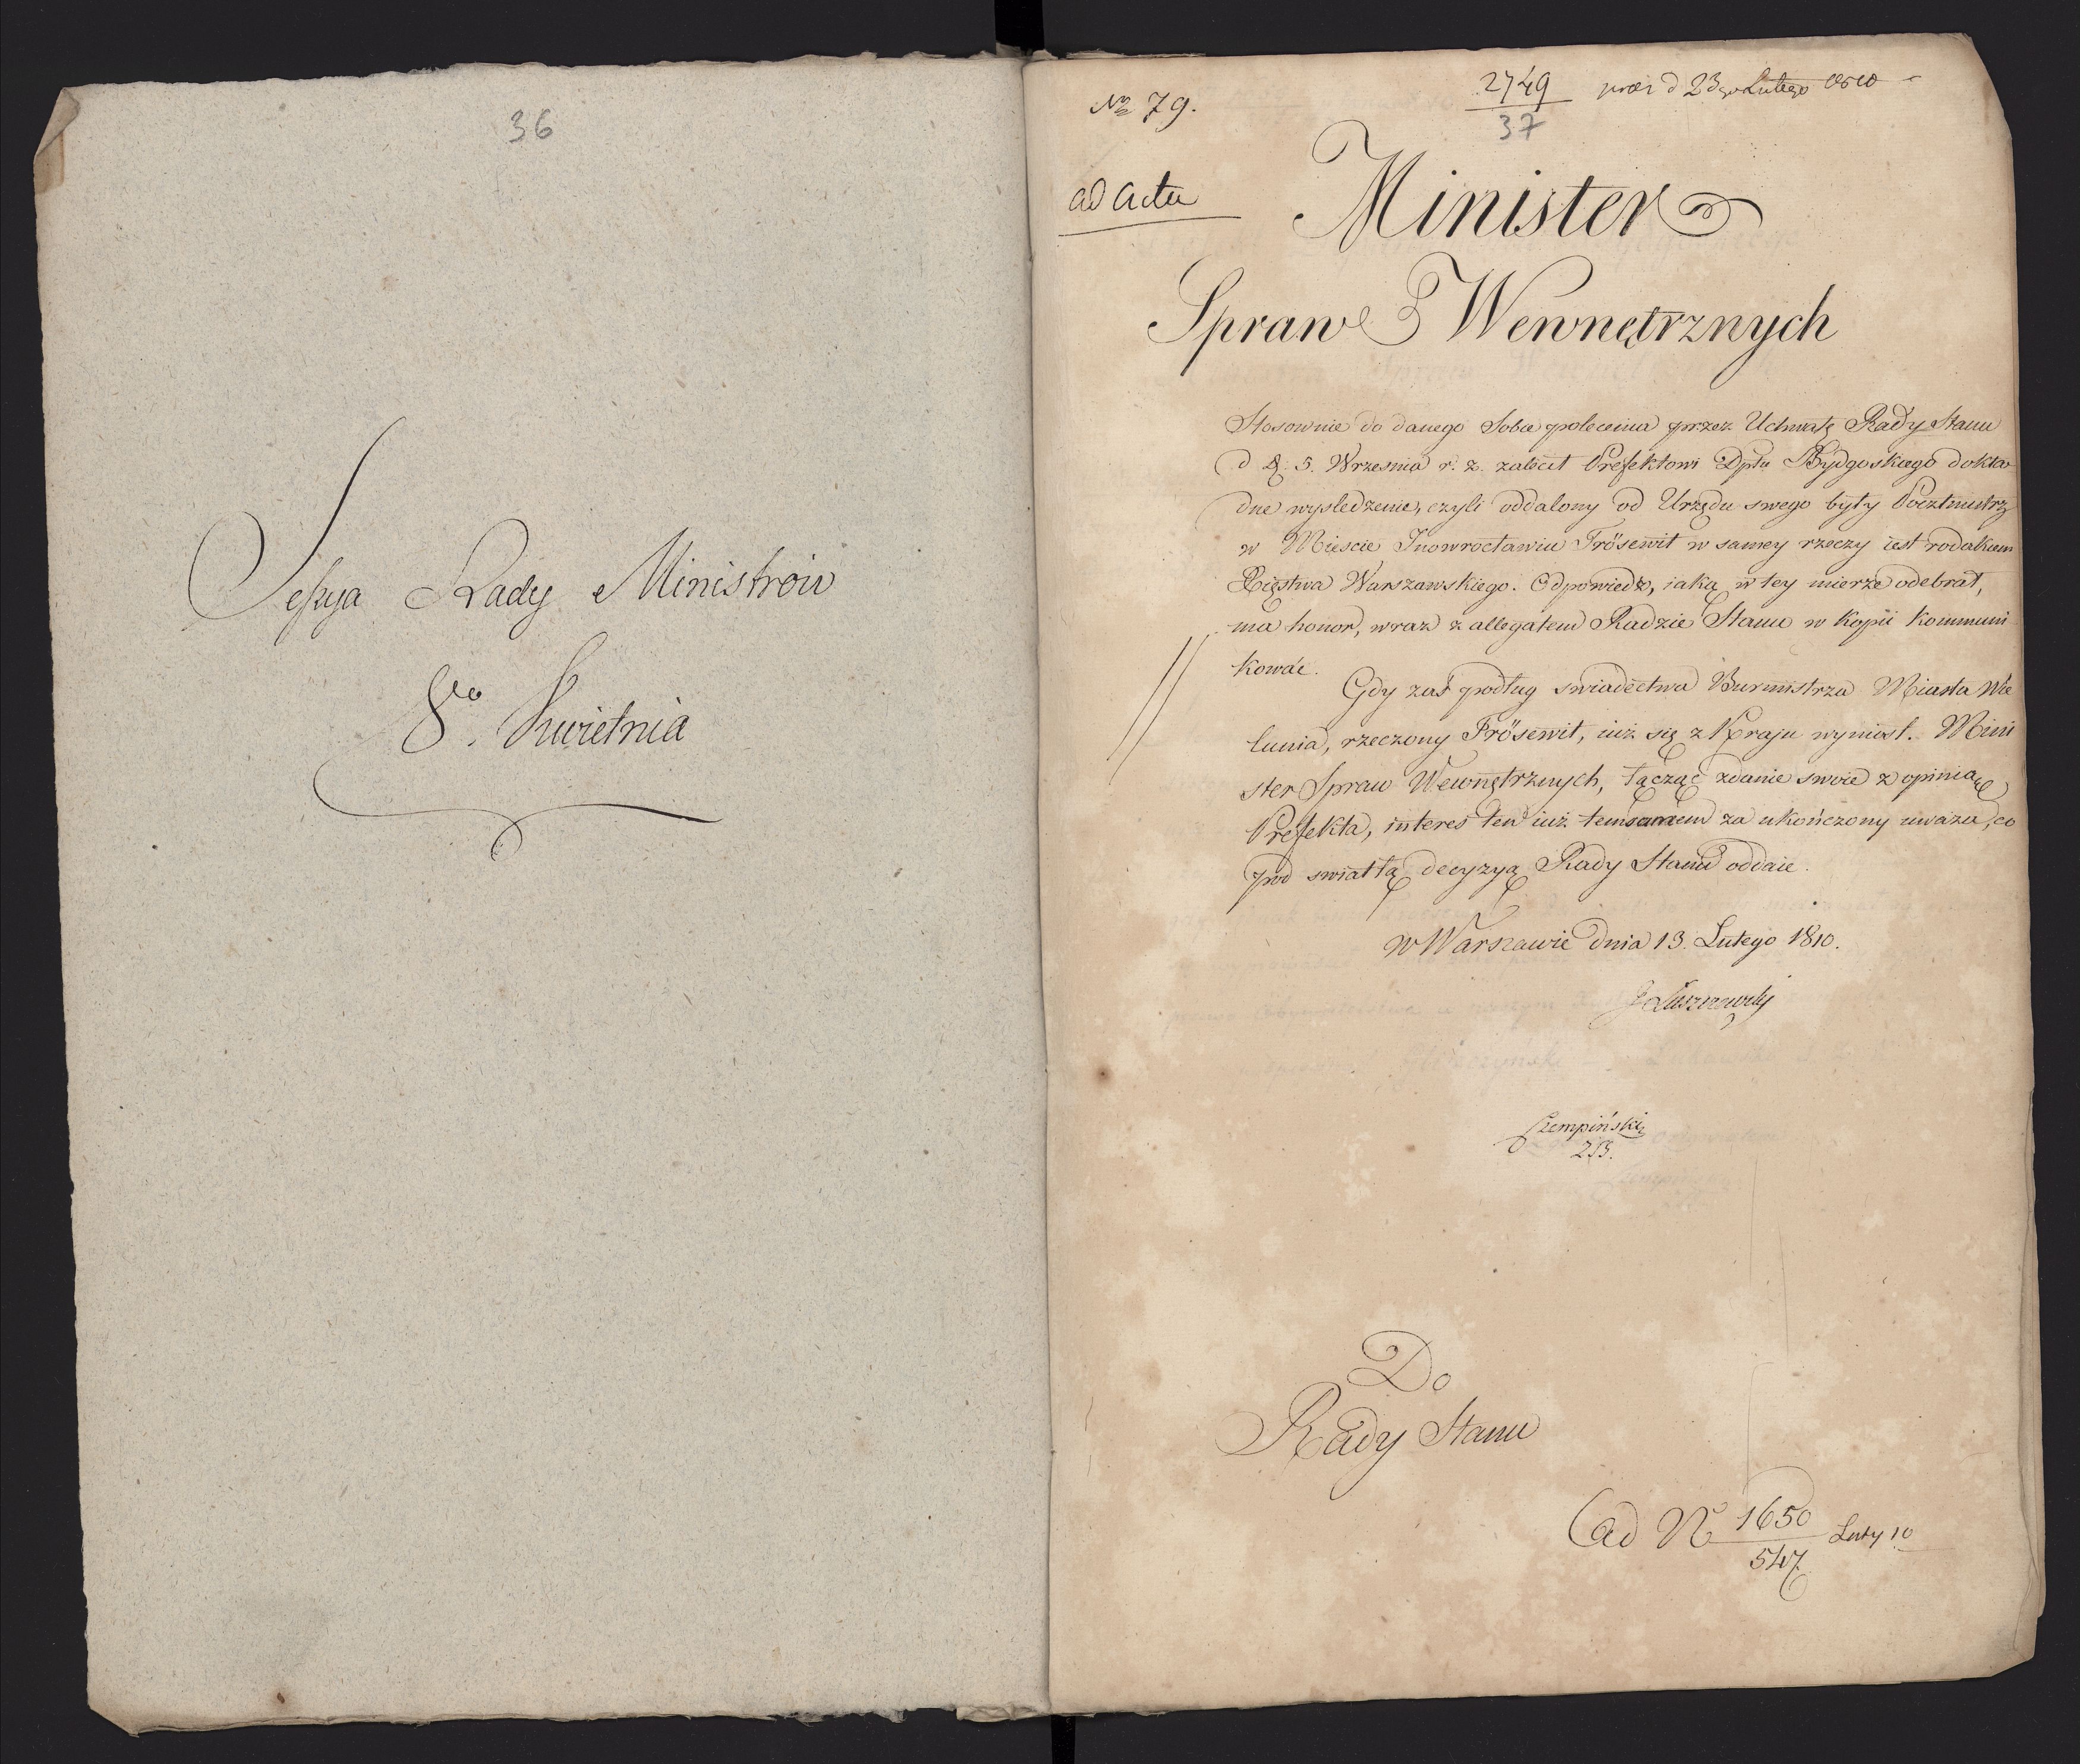 36
Sessya Rady Ministrów
8va Kwietnia
No 79.
2749
37
praes d 23go Lutego 1810
ad acta
Minister
Spraw Wewnętrznych
Stosownie do danego Sobie polecenia przez Uchwałę Rady Stanu
d d. 5. Wrzesnia r. z. zalecił Prefektowi Dptu Bydgoskiego dokła
dne wysledzenie, czyli oddalony od Urzędu swego były Pocztmistrz
w Miescie Inowrocławiu Frösewit w samey rzeczy iest rodakiem
Xięstwa Warszawskiego. Odpowiedz, iaką w tey mierze odebrał,
ma honor, wraz z allegatem Radzie Stanu w Kopii Kommuni
kować.
Gdy zaś podług swiadectwa Burmistrza Miasta Wie
lunia, rzeczony Frösewit, iuż się z Kraju wyniosł. Mini
ster Spraw Wewnętrznych, łącząc zdanie swoie z opinią
Prefekta, interes ten iuż temsamem za ukończony uważa, co
pod swiatłą decyzyą Rady Stanu oddaie.
w Warszawie dnia 13. Lutego 1810.
J Łuszczewsky
Czempiński
Do
Rady Stanu
ad No 1650
547
Luty 10